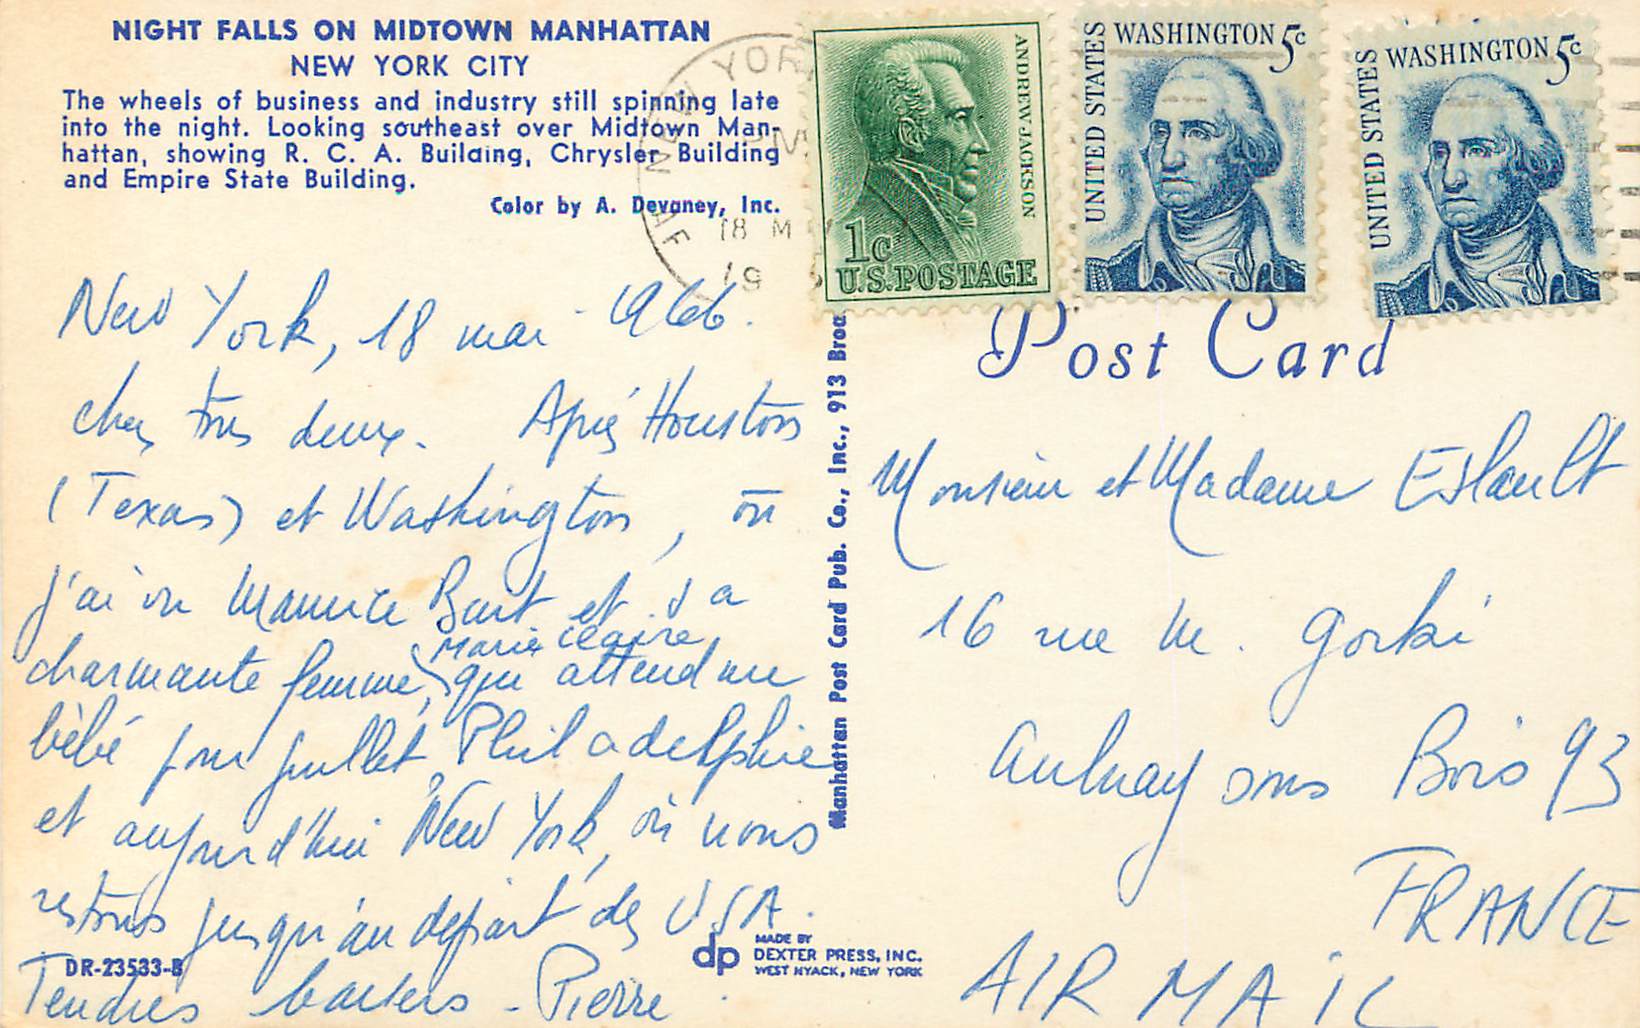 NIGHT FALLS ON MIDTOWN MANHATTAN
NEW YORK CITY
The wheels of business and industry still spinning late
into the night. Looking southeast over Midtown Man-
hattan, showing R. C. A. Building, Chrysler Building
and Empire State Building.
Color by A. Devaney, Inc.
NEW YOR
PM
18 M
19
ANDREW JACKSON
1c
U.S. POSTAGE
UNITED STATES
WASHINGTON 5c
UNITED STATES
WASHINGTON 5c
New York, 18 mai 1966.
chers tous deux. Après Houston
(Texas) et Washington, où
j'ai vu Maurice et sa
Marie Claire
charmante femme, qui attend un
bébé pour juillet, Philadelphie
et aujourd'hui New York, où nous
restons jusqu'au départ des USA.
Tendres baisers - Pierre
DR-23533-B
Manhattan Post Card Pub. Co., Inc., 913 Broa
Post Card
Monsieur et Madame Eslault
16 rue M. Gorki
Aulnay sous Bois 93
FRANCE
AIR MAIL
dp
MADE BY
DEXTER PRESS, INC.
WEST NYACK, NEW YORK